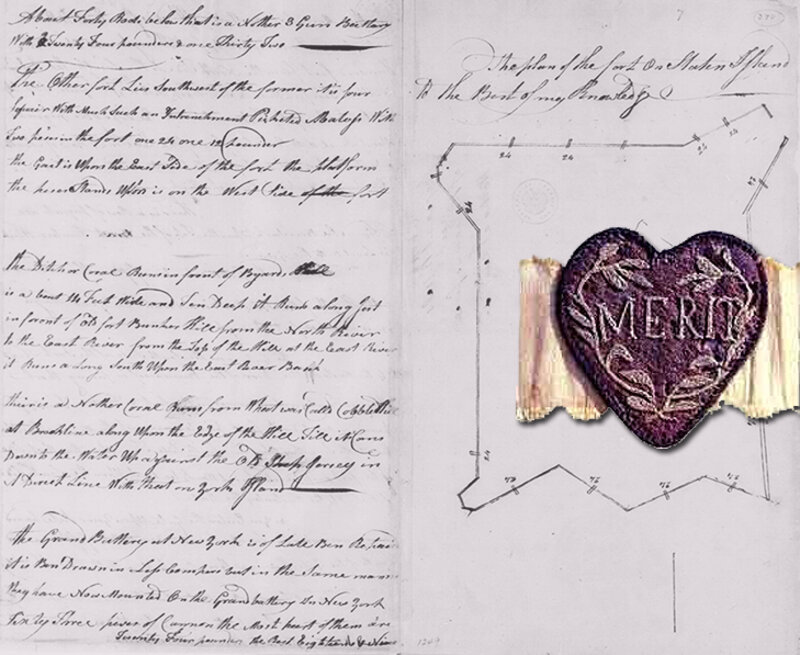 About Forty Rods below that is a Nother 3 Gun Battery
With 2 Twenty Four pounders & one Thirty Two
The Other fort Lies Southwest of the former it is four
Squair With Much Such an Intrenchment Picketed With
Two in the fort one 24 one 12 pounder
the Gait is Upon the East Side of the fort the platform
the Stands Upon is on the West Side of the fort
the Ditch or Coral Runs in front of Byards Hill
is a bout 14 Feet Wide and Ten Deep it Runs along Just
in foront of Old fort Bunker Hill from the North River
to the East River from the Top of the Hill at the East River
it Runs a Long South Upon the East River Bank
there is a Nother Coral Runs from What was Calld Cobble Hill
at Brookline along Upon the Edge of the Hill Till it Coms
Down to the Water Up against the Old Jersey in
A Direct Line With that on York Island
the Grand Battery at New York is of Late Ben
it is Ben Drawn in Less Compass but in the Same
they have Now Mounted On the Grand battery In New York
Sixty Three peices of Cannon the Most of them are
Twenty Four pounders the Rest Eighteens & Nine
The plan of the fort On Staten Island
To the Best of my Knowledg
24
24
24
24
24
MERIT